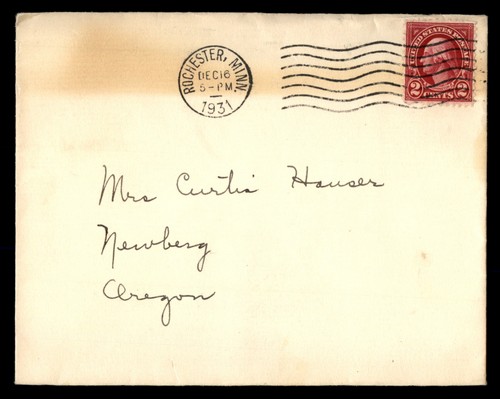 ROCHESTER, MINN.
DEC 16
5-PM
1931
UNITED STATES POSTAGE
2 CENTS 2
Mrs Curtis Hauser
Newberg
Oregon